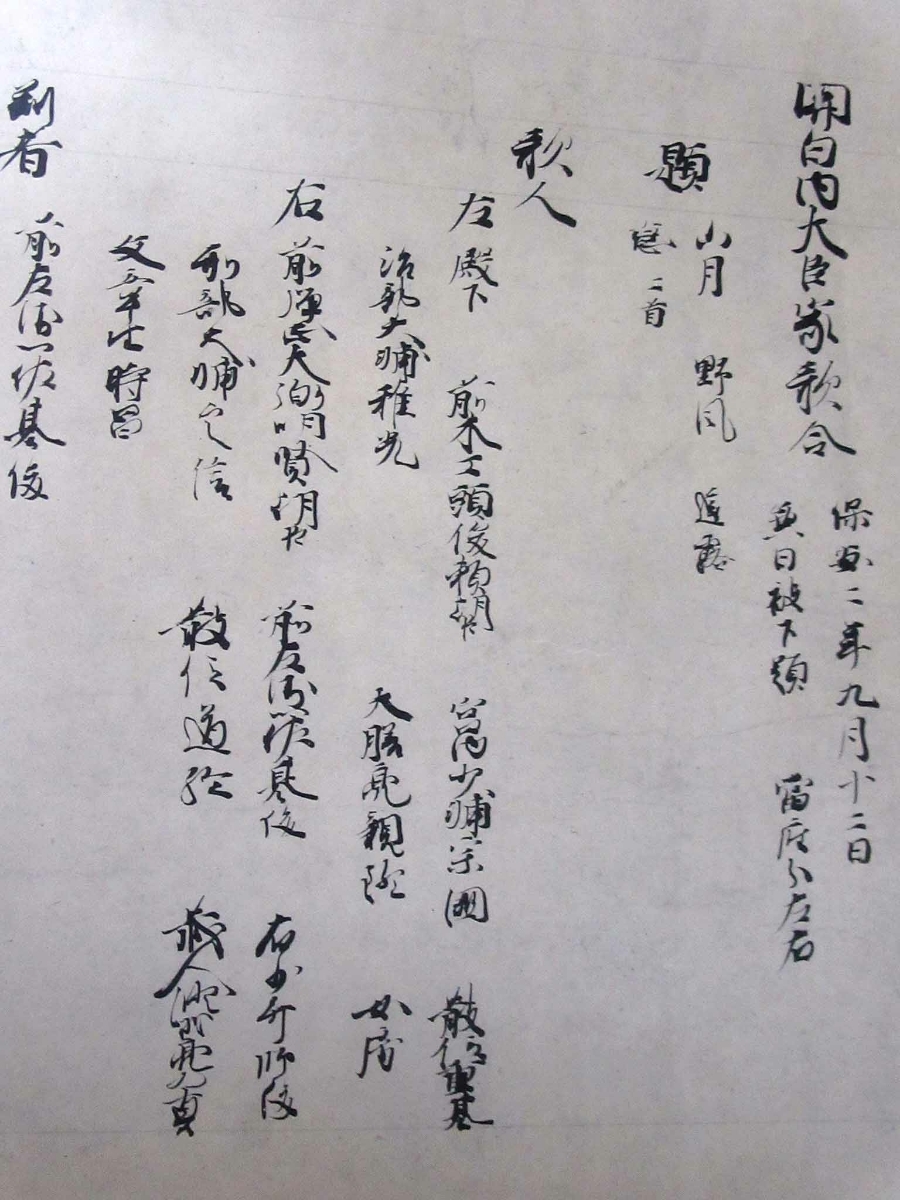 関白内大臣家歌合
保安二年九月十二日
兼日被下題 當座分左右
題
山月 野風 庭露
恋二首
歌人
左 殿下 前木工頭俊頼朝臣 宮内少輔宗国 散位重基
治部大輔雅光 大膳亮親隆 女房
右 前 兼昌 前左衛門佐基俊 右少弁師俊
刑部大輔定信 散位道経 蔵人
文章生時昌
判者 前左衛門佐基俊